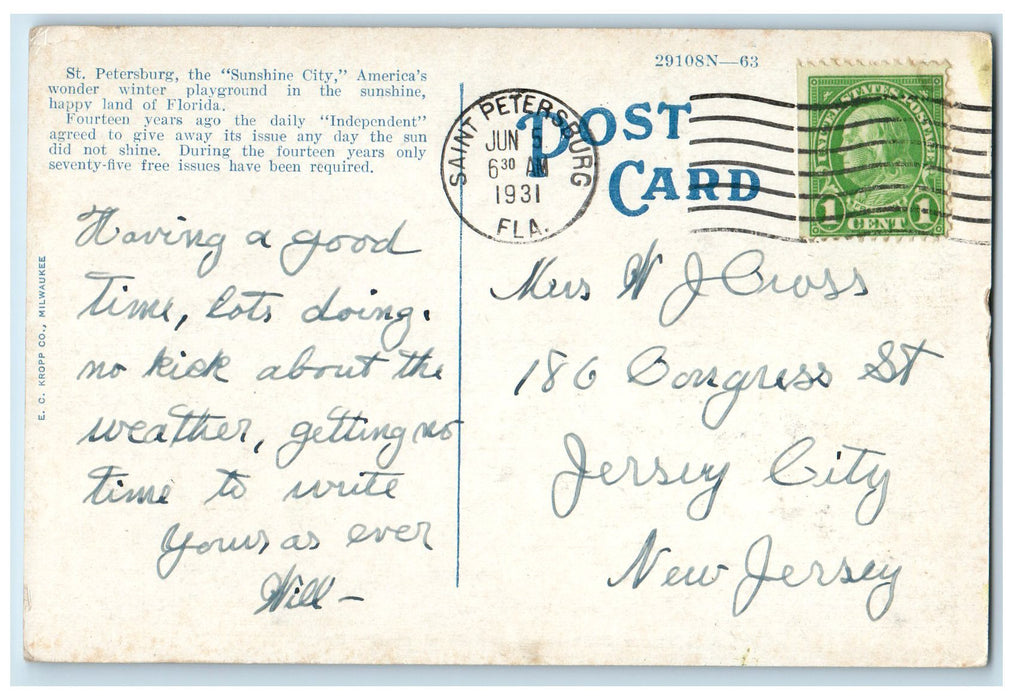 St. Petersburg, the "Sunshine City," America's
wonder winter playground in the sunshine,
happy land of Florida.
Fourteen years ago the daily "Independent"
agreed to give away its issue any day the sun
did not shine. During the fourteen years only
seventy-five free issues have been required.
E. C. KROPP CO., MILWAUKEE
Having a good
time, lots doing.
no kick about the
weather, getting no
time to write
Yours as ever
Will –
29108N—63
POST
CARD
SAINT PETERSBURG
JUN 5
6 30 AM
1931
FLA.
UNITED STATES POSTAGE
1 CENT 1
Mrs W J Cross
186 Congress St
Jersey City
New Jersey